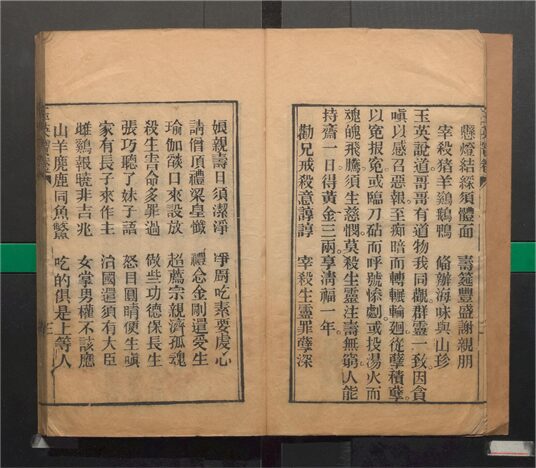 懸燈結綵須體面　壽筵豐盛謝親朋
宰殺猪羊鷄鵝鴨　偹辦海味與山珍
玉英說道哥哥有道物我同觀群靈一致因貪
嗔以感召惡報至痴暗而轉轆輪廻從孽積孽
以寃报寃或臨刀砧而呼號惨劇或投湯火而
魂魄飛騰須生慈憫莫殺生靈注壽無窮人能
持齋一日得黃金三兩享清福一年
勸兄戒殺意諄諄　宰殺生靈罪孽深
娘親壽日須潔淨　淨厨吃素要虔心
請僧頂禮梁皇懺　禮念金剛還受生
瑜伽燄口來設放　超薦宗親濟孤魂
殺生害命多罪過　做些功德保長生
張巧聽了妹子語　怒目圓睛便生嗔
家有長子來作主　治國還須有大臣
雌鷄報曉非吉兆　女掌男權不該應
山羊麂鹿同魚鱉　吃的俱是上等人